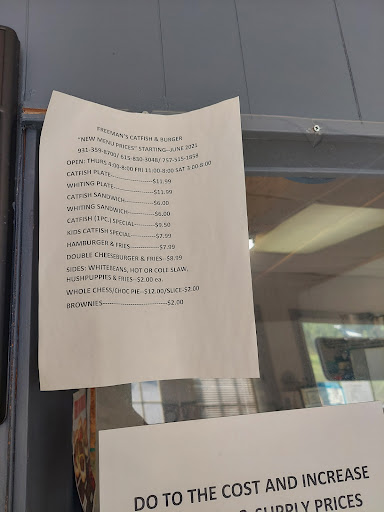 FREEMAN'S CATFISH & BURGER
"NEW MENU PRICES" STARTING--JUNE 2021
931-359-8700/ 615-830-3048/ 757-515-1858
OPEN: THURS 4:00-8:00 FRI 11:00-8:00 SAT 3:00-8:00
CATFISH PLATE-------------------$11.99
WHITING PLATE-------------------$11.99
CATFISH SANDWICH-------------$6.00
WHITING SANDWICH-------------$6.00
CATFISH (1PC.) SPECIAL---------$9.50
KIDS CATFISH SPECIAL-----------$7.99
HAMBURGER & FRIES-------------$7.99
DOUBLE CHEESEBURGER & FRIES--$8.99
SIDES: WHITEBEANS, HOT OR COLE SLAW,
HUSHPUPPIES & FRIES--$2.00 ea.
WHOLE CHESS/CHOC PIE--$12.00/SLICE-$2.00
BROWNIES-----------------------------$2.00
DO TO THE COST AND INCREASE
SUPPLY PRICES